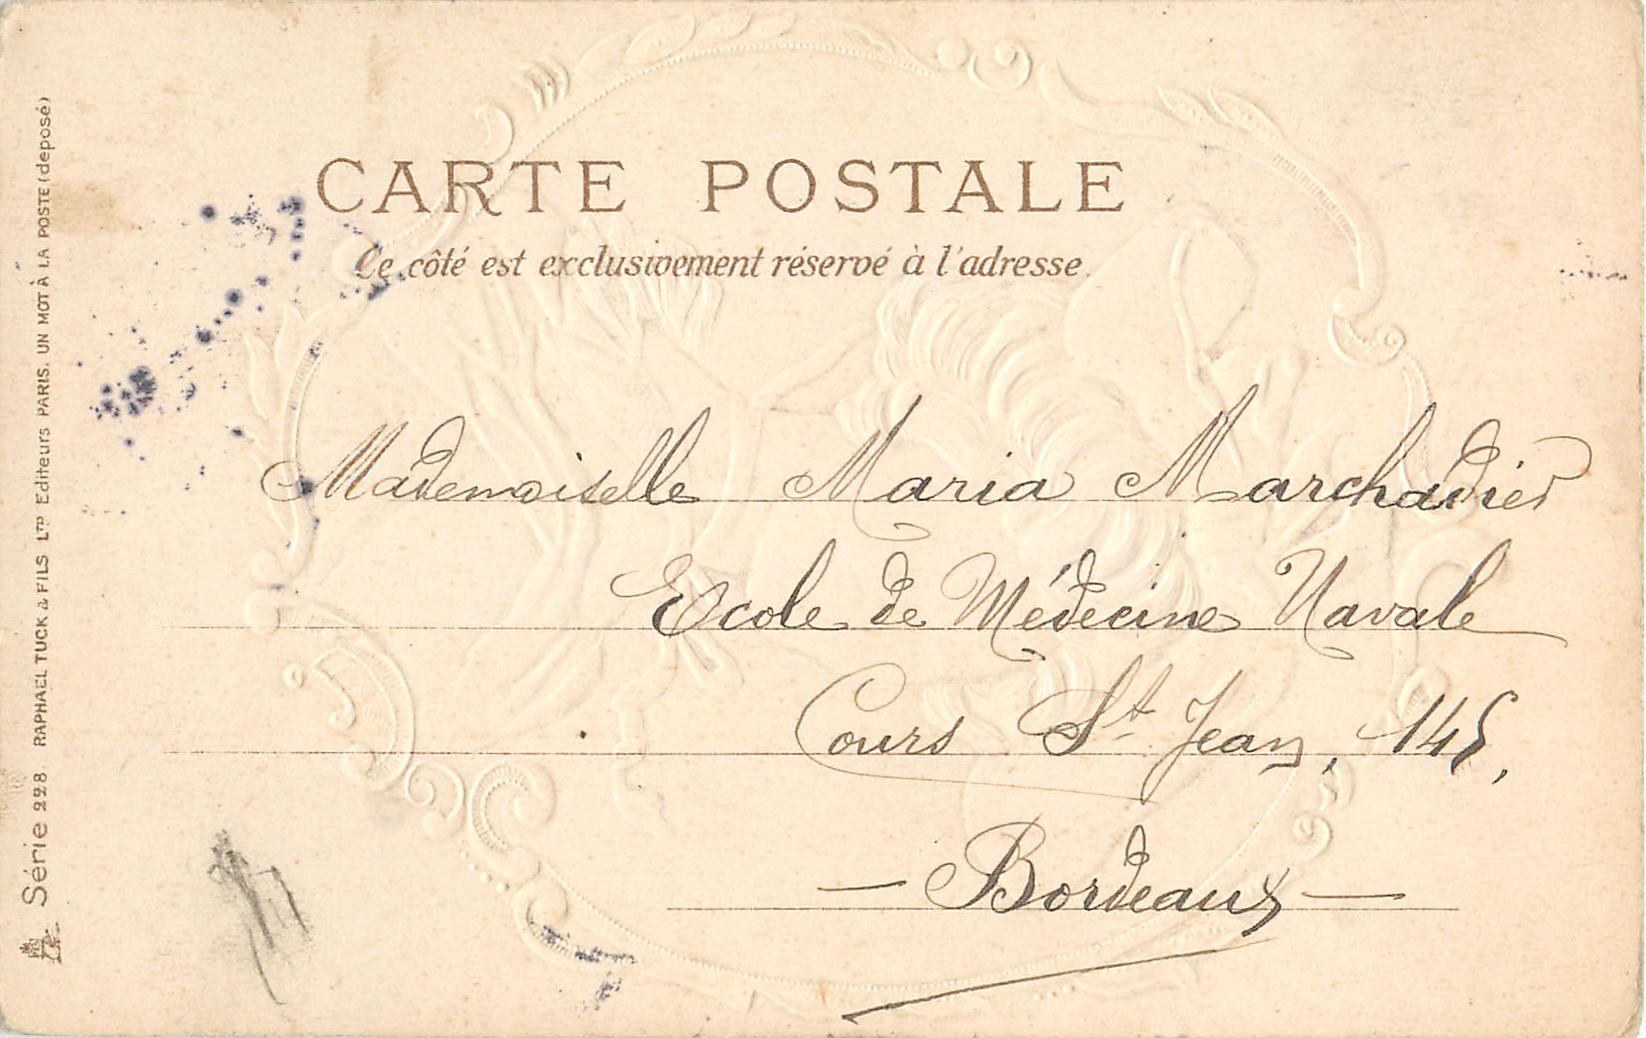 CARTE POSTALE
Ce côté est exclusivement réservé à l'adresse.
Mademoiselle Maria Marchadier
Ecole de Médecine Navale
Cours St Jean, 145,
— Bordeaux —
Série 228. RAPHAEL TUCK & FILS LTD Editeurs PARIS. UN MOT À LA POSTE (deposé)